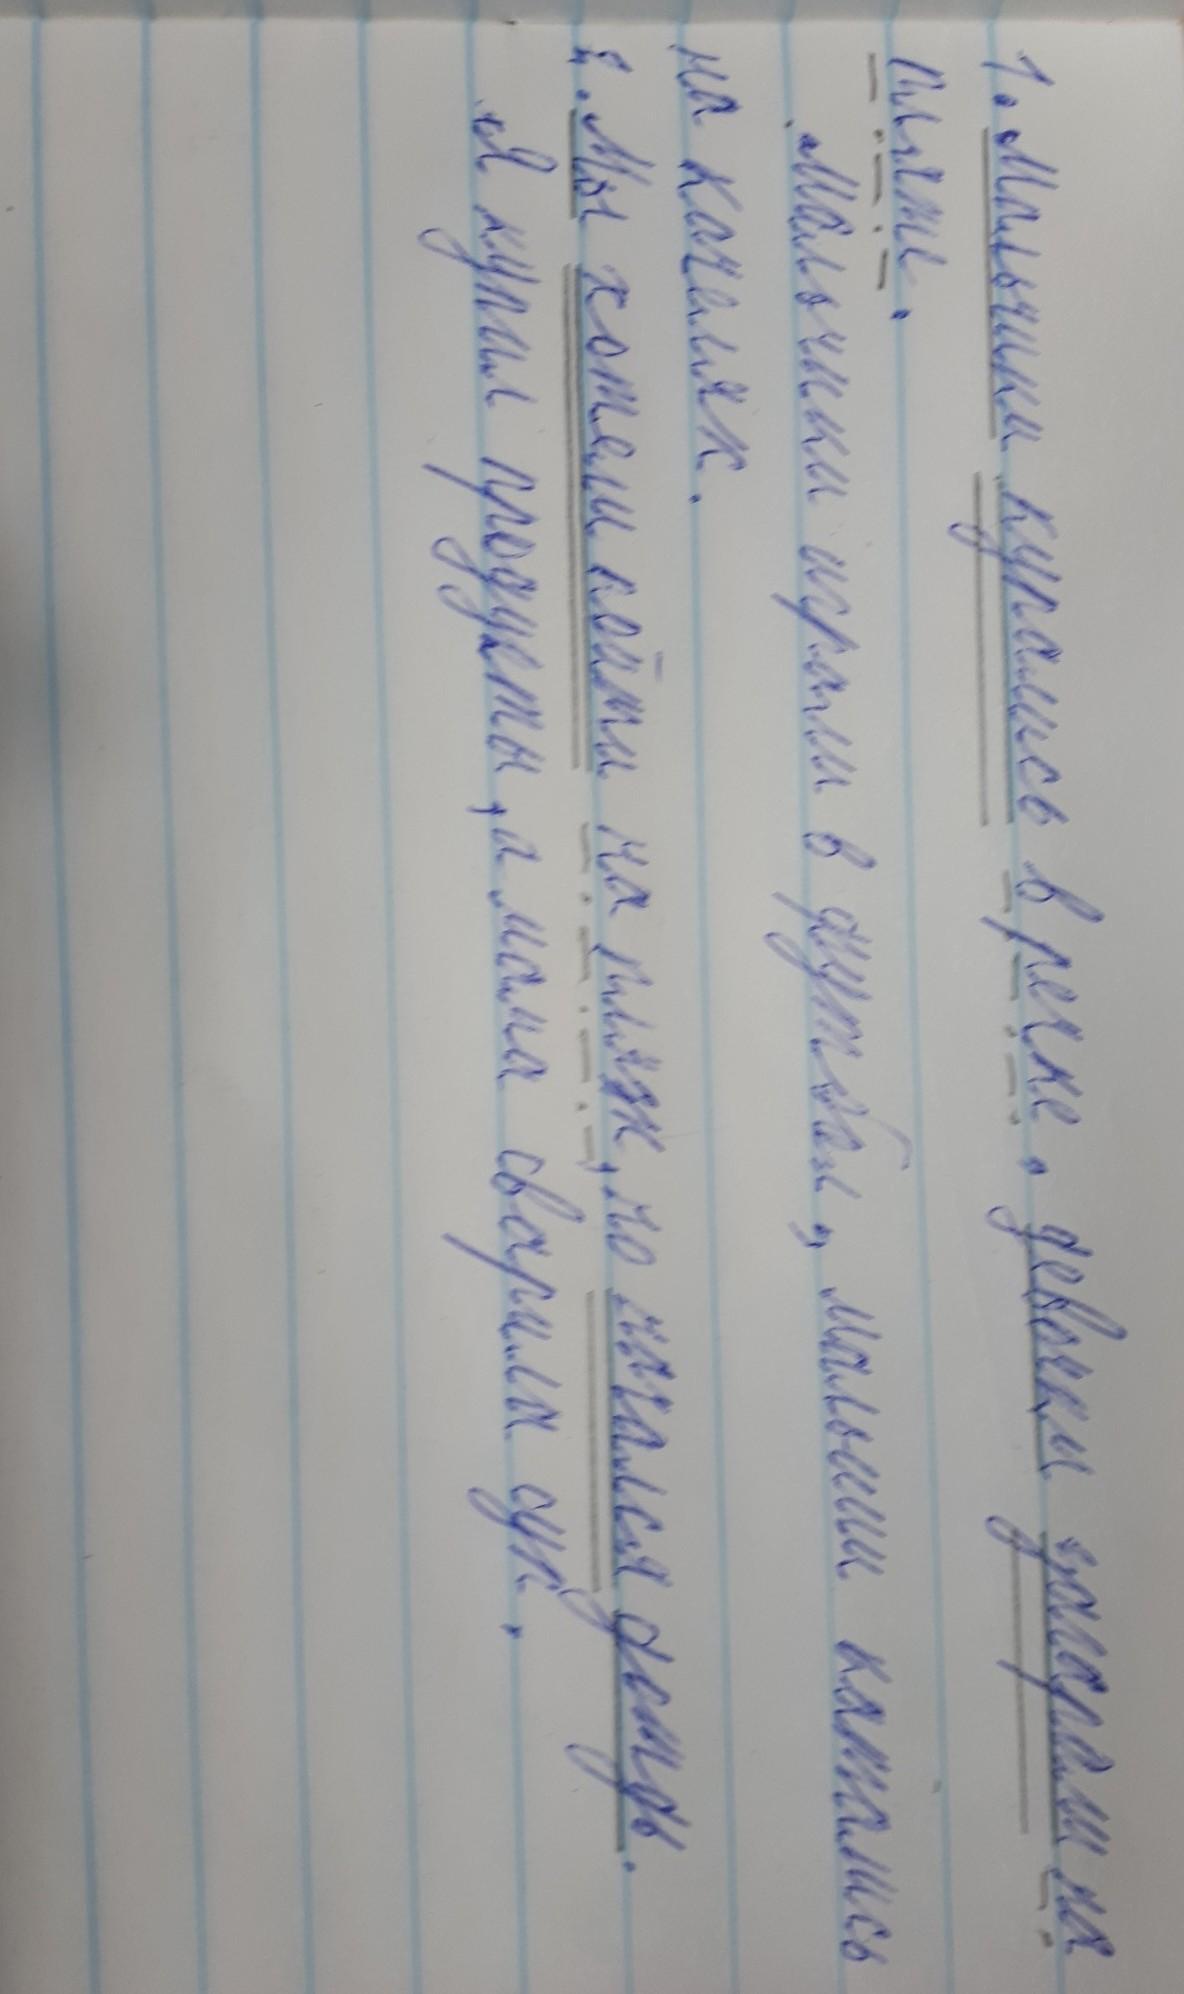 1. Мальчики купались в речке, девочки загарали на
пляже.
Мальчики играли в футбол, малыши катались
на качелях.
2. Мы хотели пойти на пляж, но начался дождь.
Я купил продукты, а мама сварила суп.